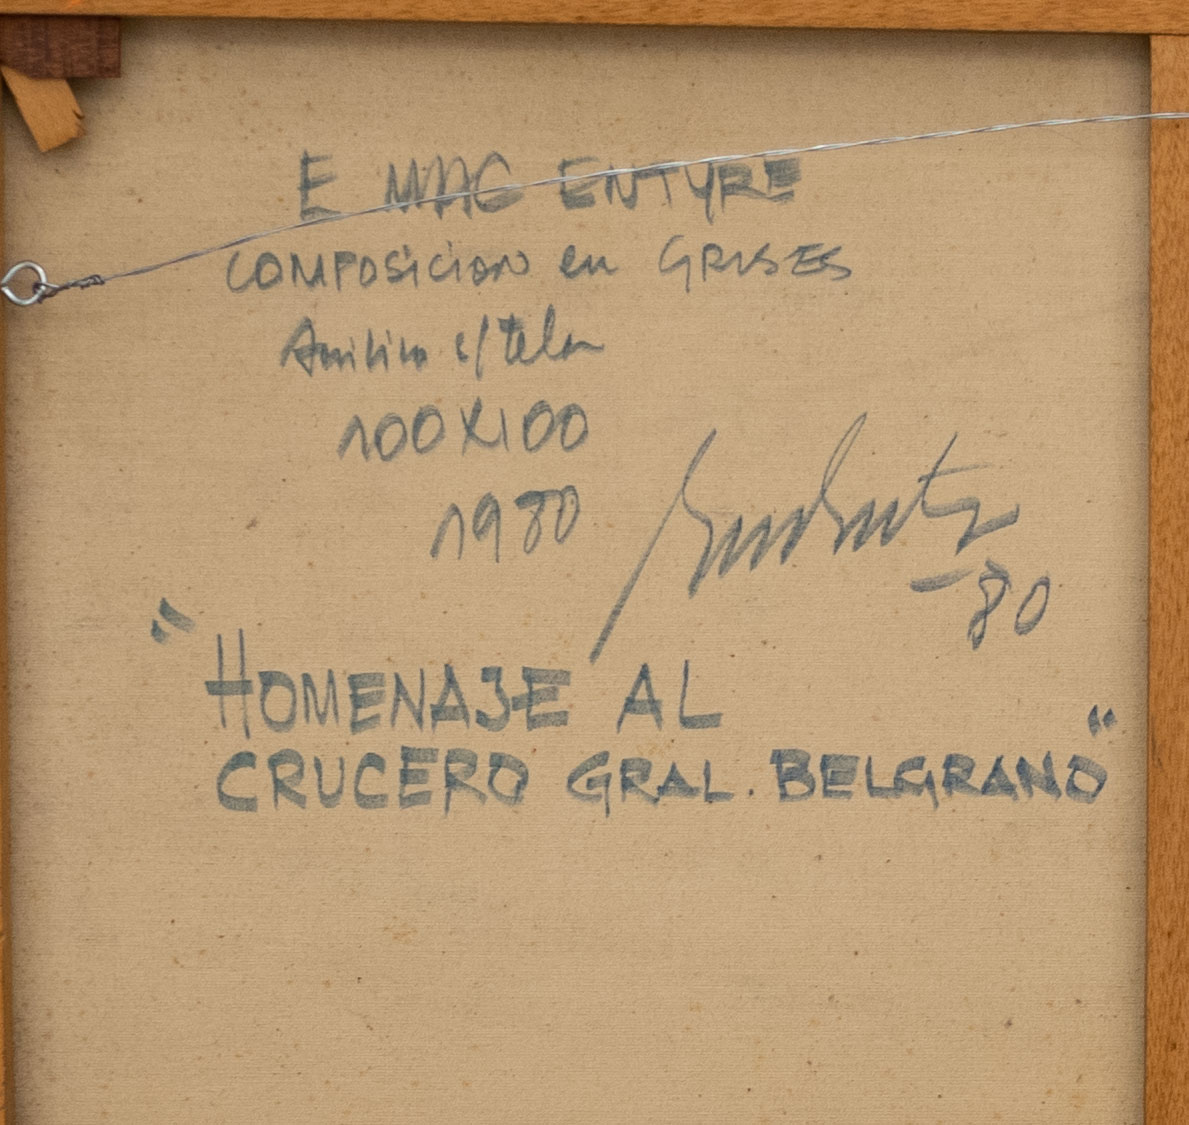 E MAC ENTYRE
COMPOSICION en GRISES
Acrilico s/tela
100X100
1980
-80
"HOMENAJE AL
CRUCERO GRAL. BELGRANO"